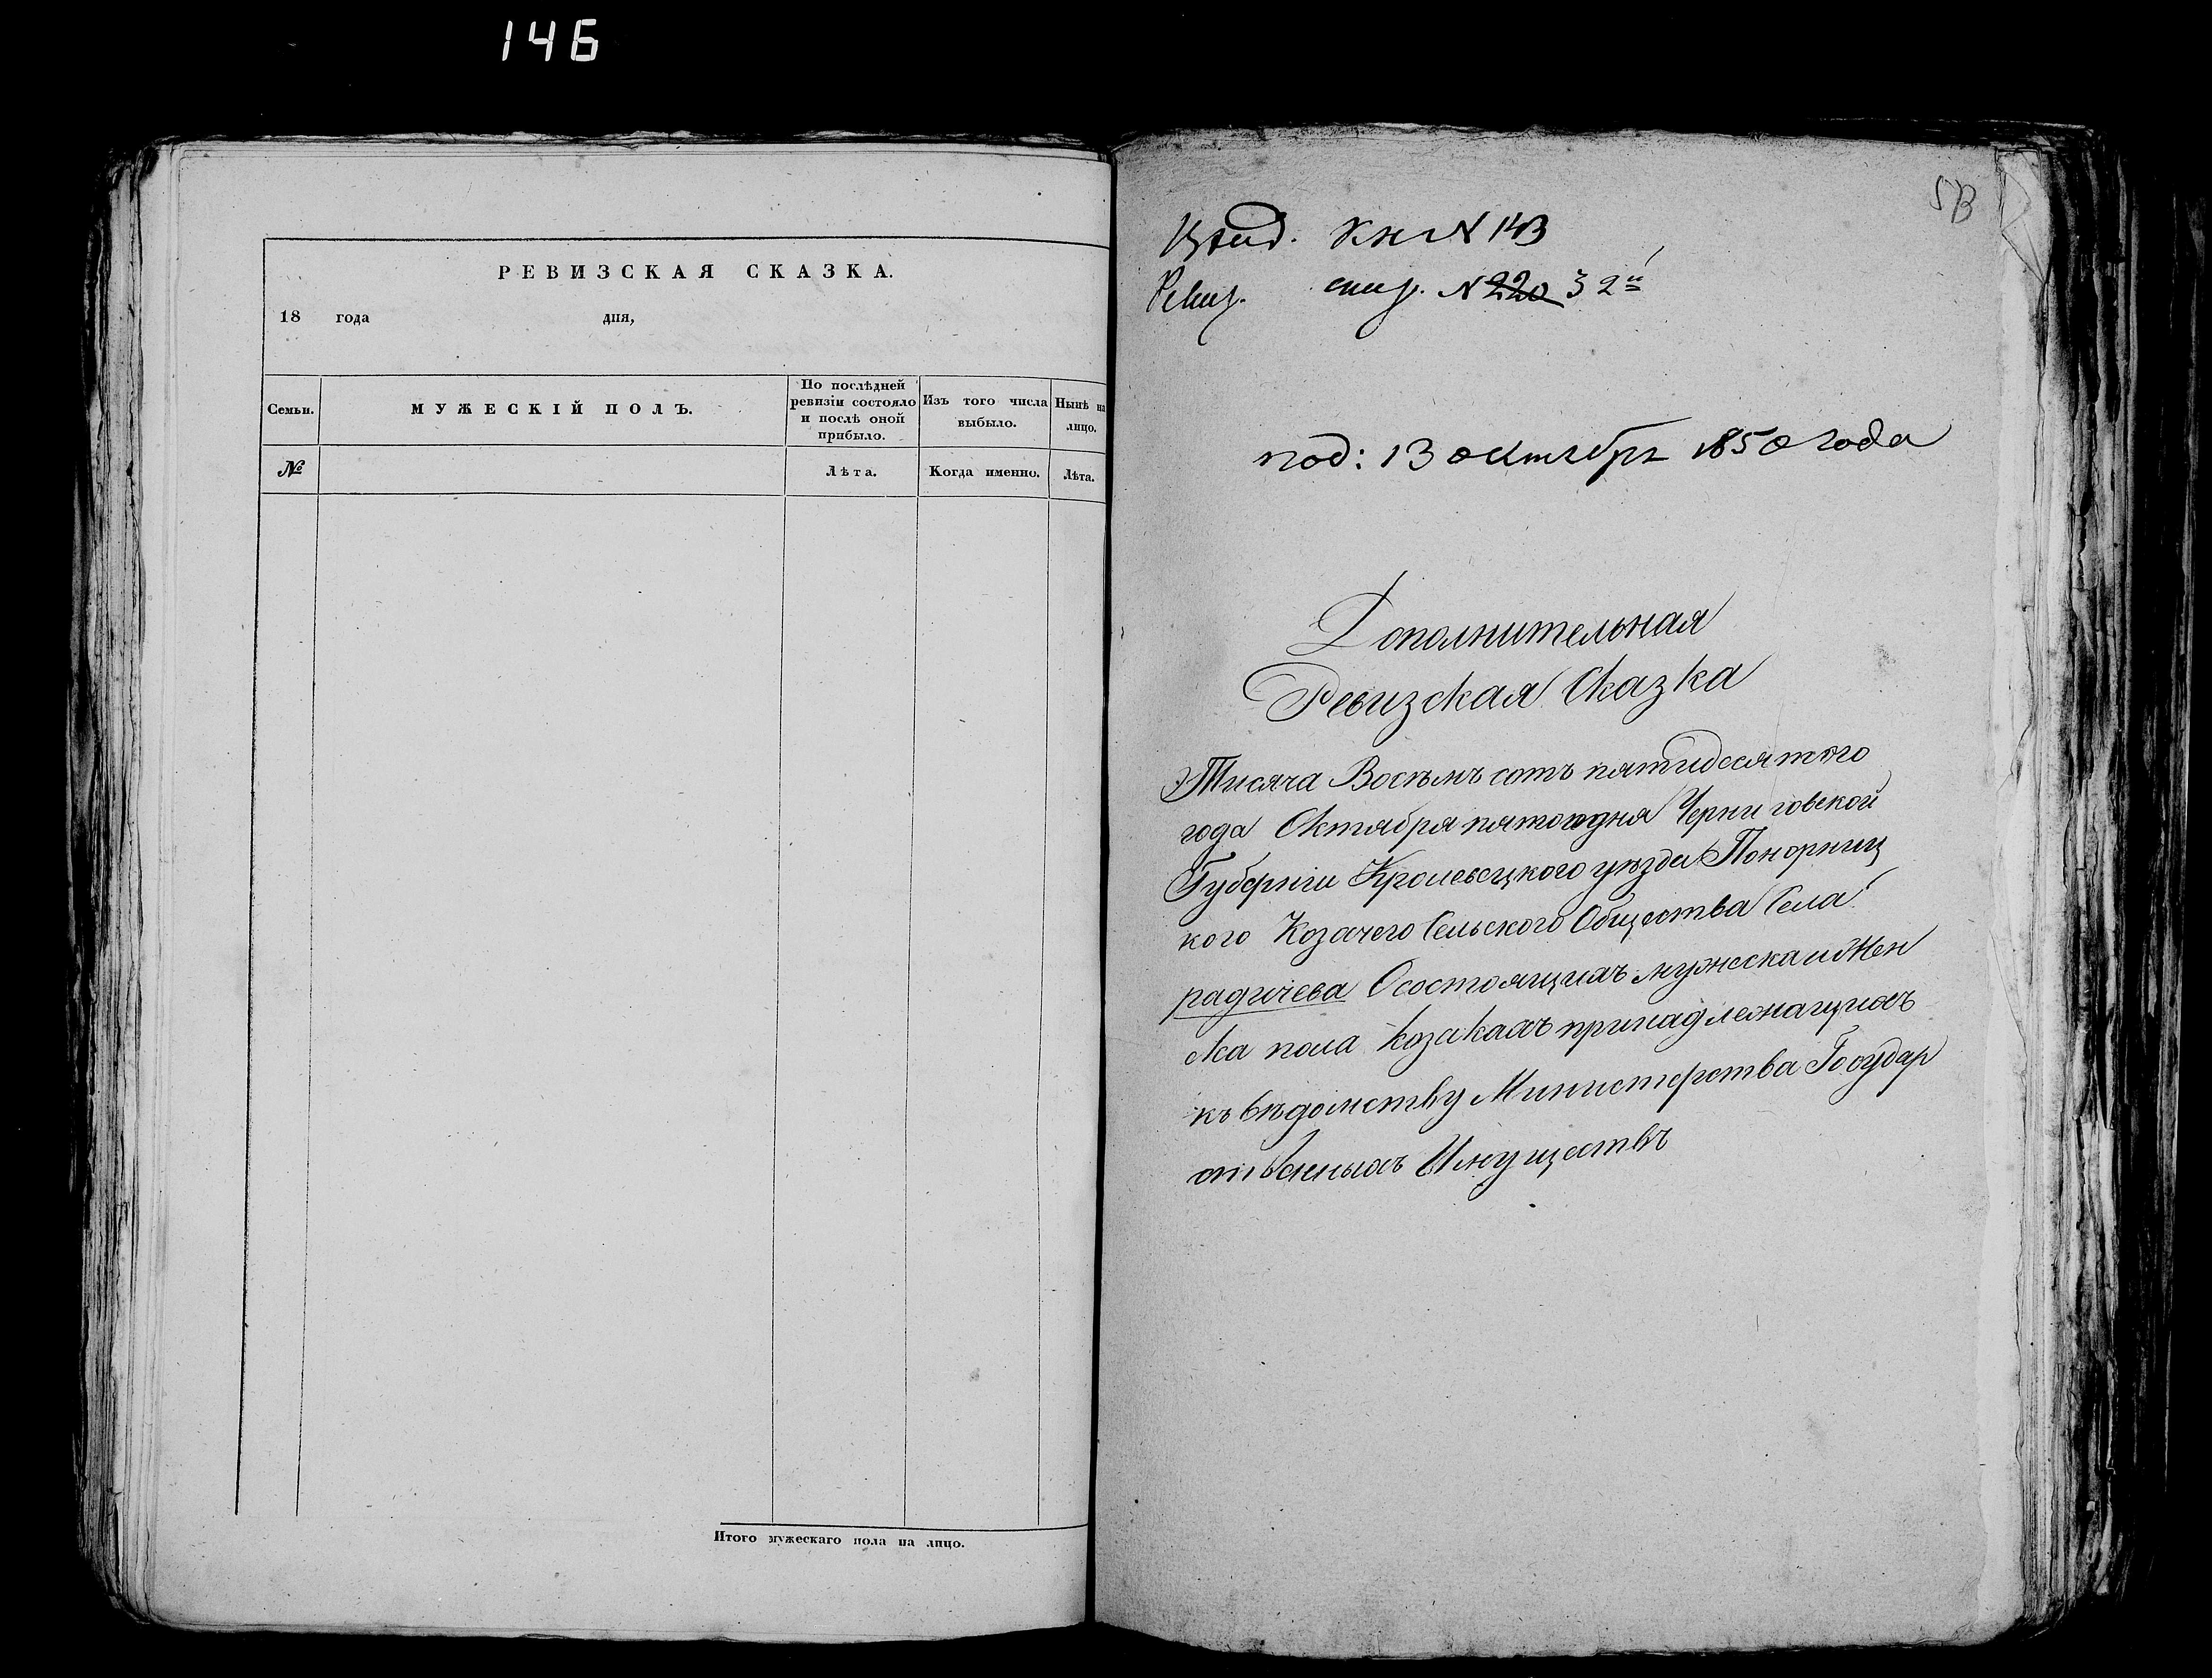 146
РЕВИЗСКАЯ СКАЗКА.
18 года дня,
Семьи. МУЖЕСКІЙ ПОЛЪ. По послѣдней ревизіи состояло и послѣ оной прибыло. Изъ того числа выбыло. Нынѣ на лицо.
№ Лѣта. Когда именно. Лѣта.
Итого мужескаго пола на лицо.
Кн N 143
Ревиз. N 220
под: 13 октября 1850 года
Дополнительная
Ревизская Сказка
Тисяча Восѣмъ сотъ пятидесятого
года Октября пятого дня Черниговской
Губерніи Кролевецкого уѣзда Понорниц
кого Козачего Сельского Общества Села
радичева О состоящихъ мужеска и Жен
ска пола козакахъ принадлежащихъ
къ вѣдомству Министерства Государ
ственныхъ Имуществъ